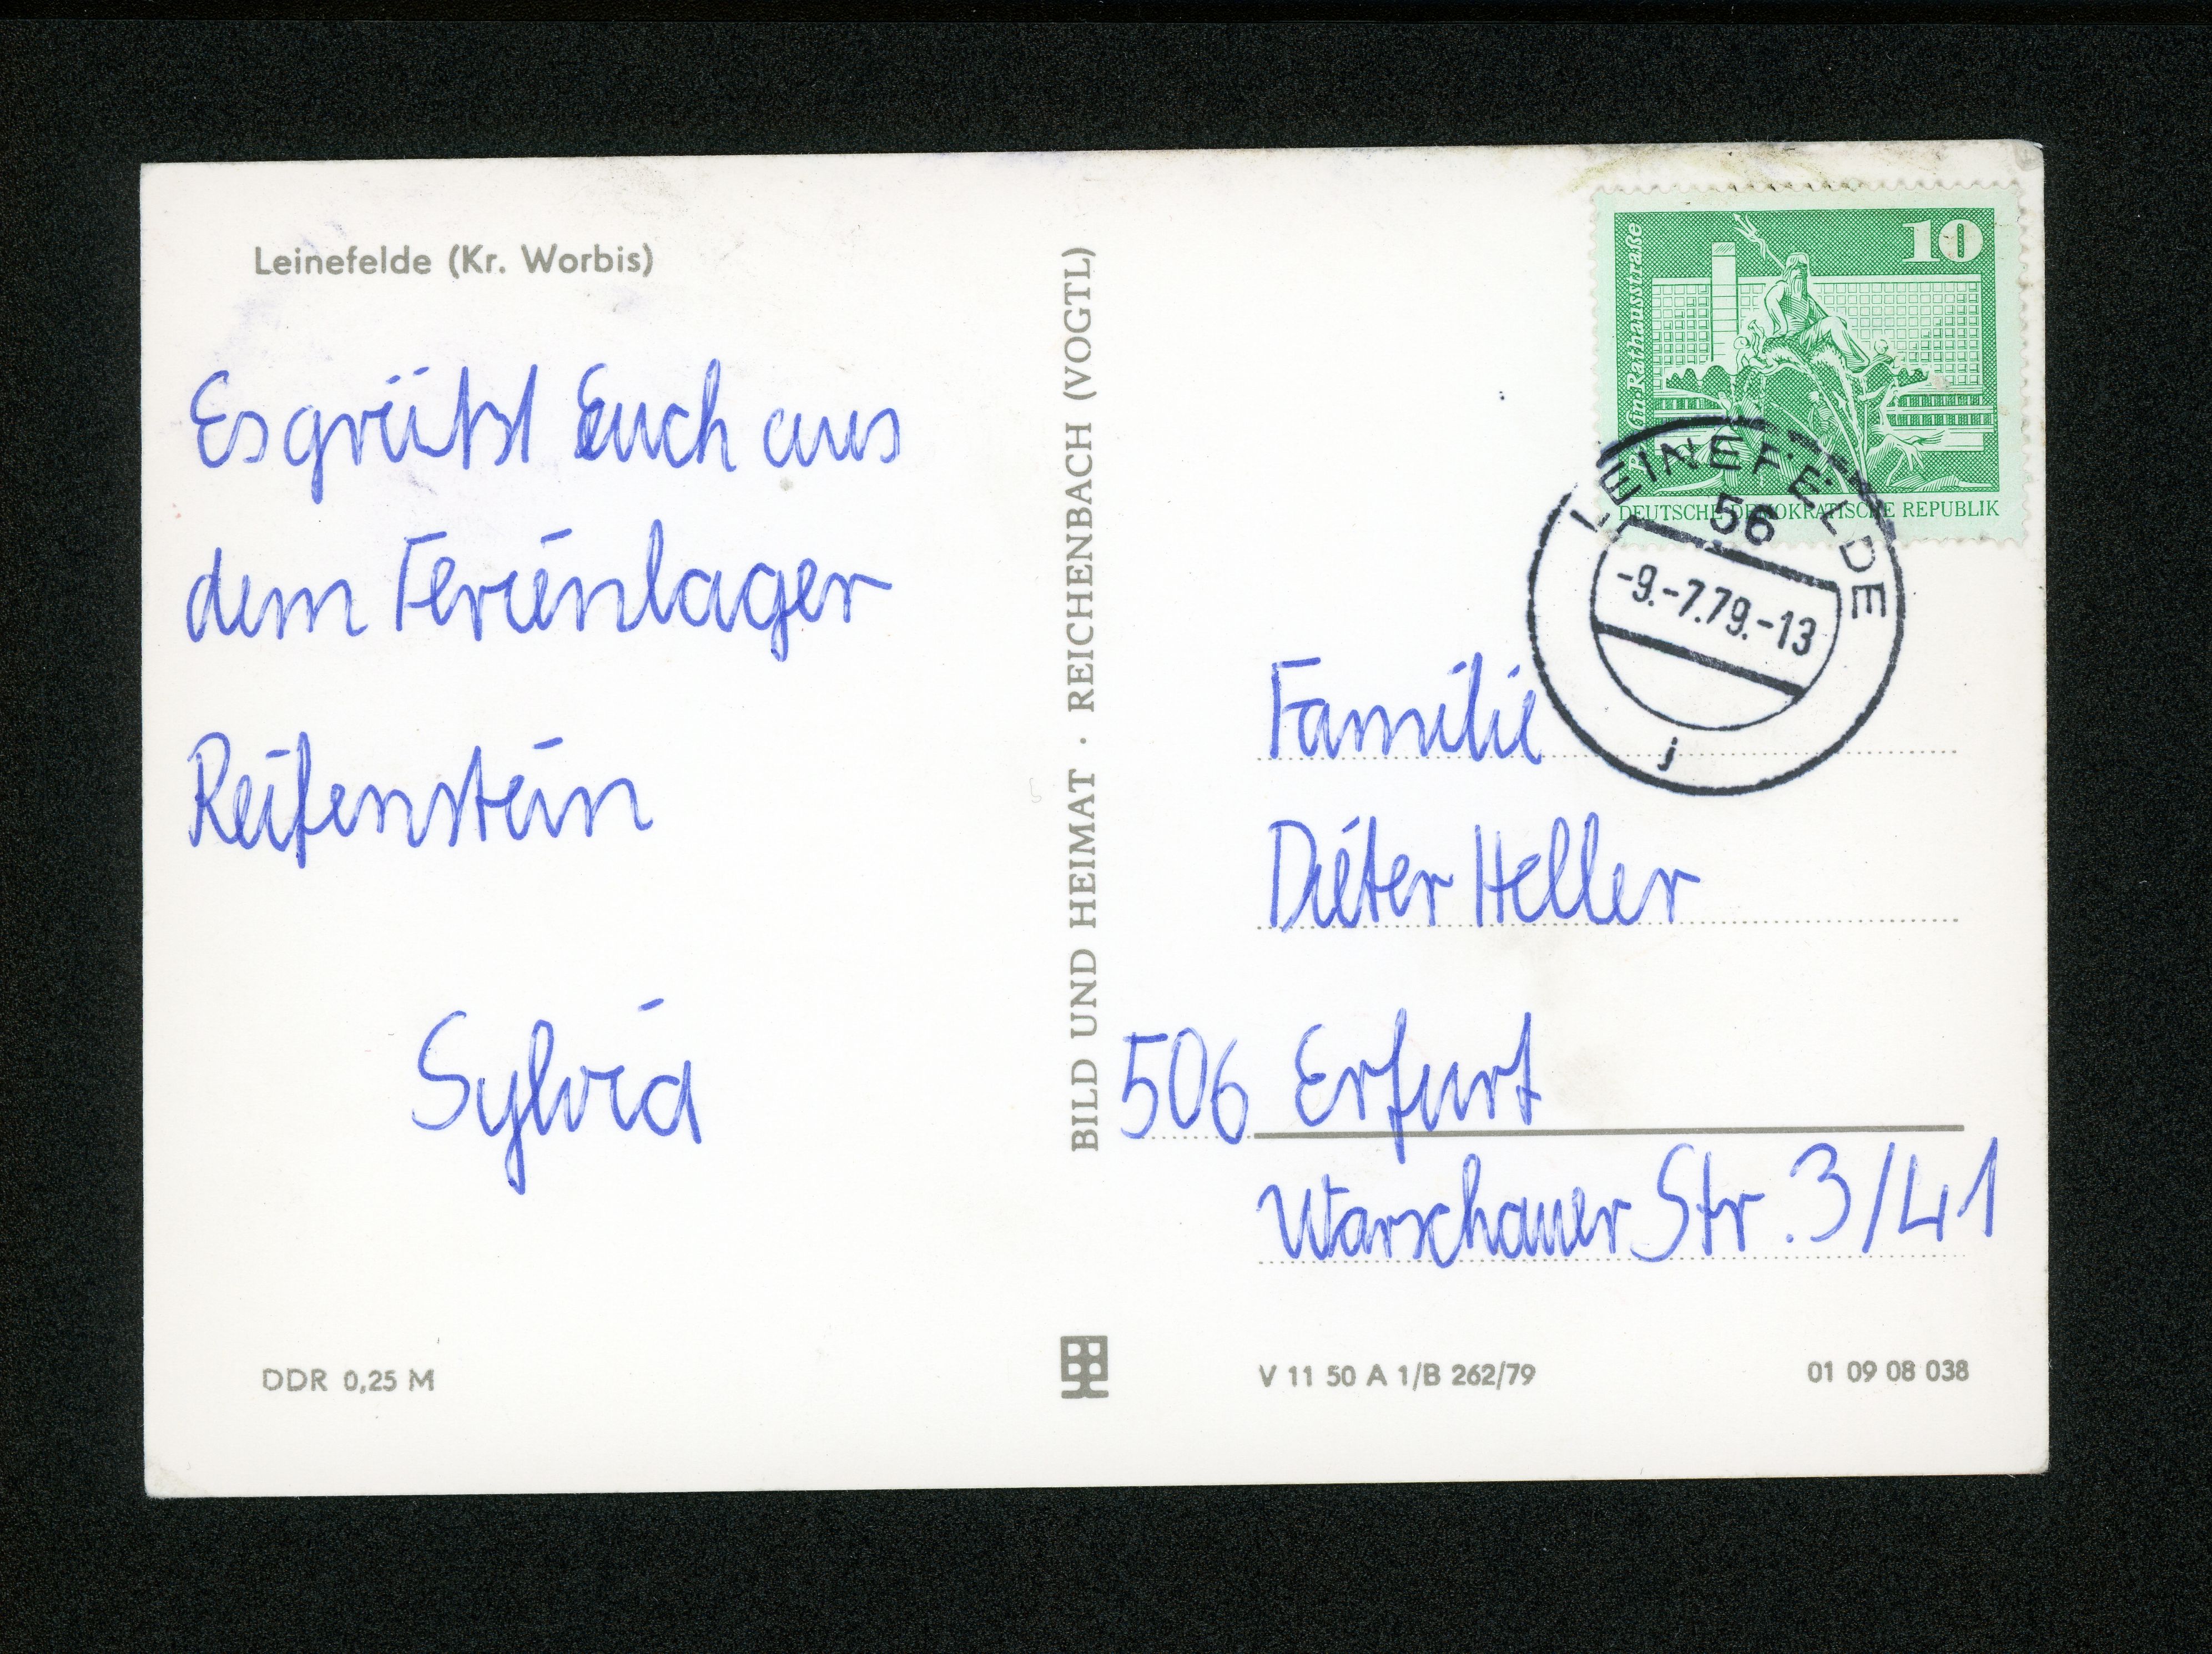 Leinefelde (Kr. Worbis)
Es grüßt Euch aus
dem Ferienlager
Reifenstein
Sylvia
DDR 0,25 M
BILD UND HEIMAT · REICHENBACH (VOGTL)
10
Rathausstraße
DEUTSCHE DEMOKRATISCHE REPUBLIK
LEINEFELDE
56
-9.-7.79.-13
j
Familie
Dieter Heller
506 Erfurt
Warschauer Str. 3/41
V 11 50 A 1/B 262/79
01 09 08 038